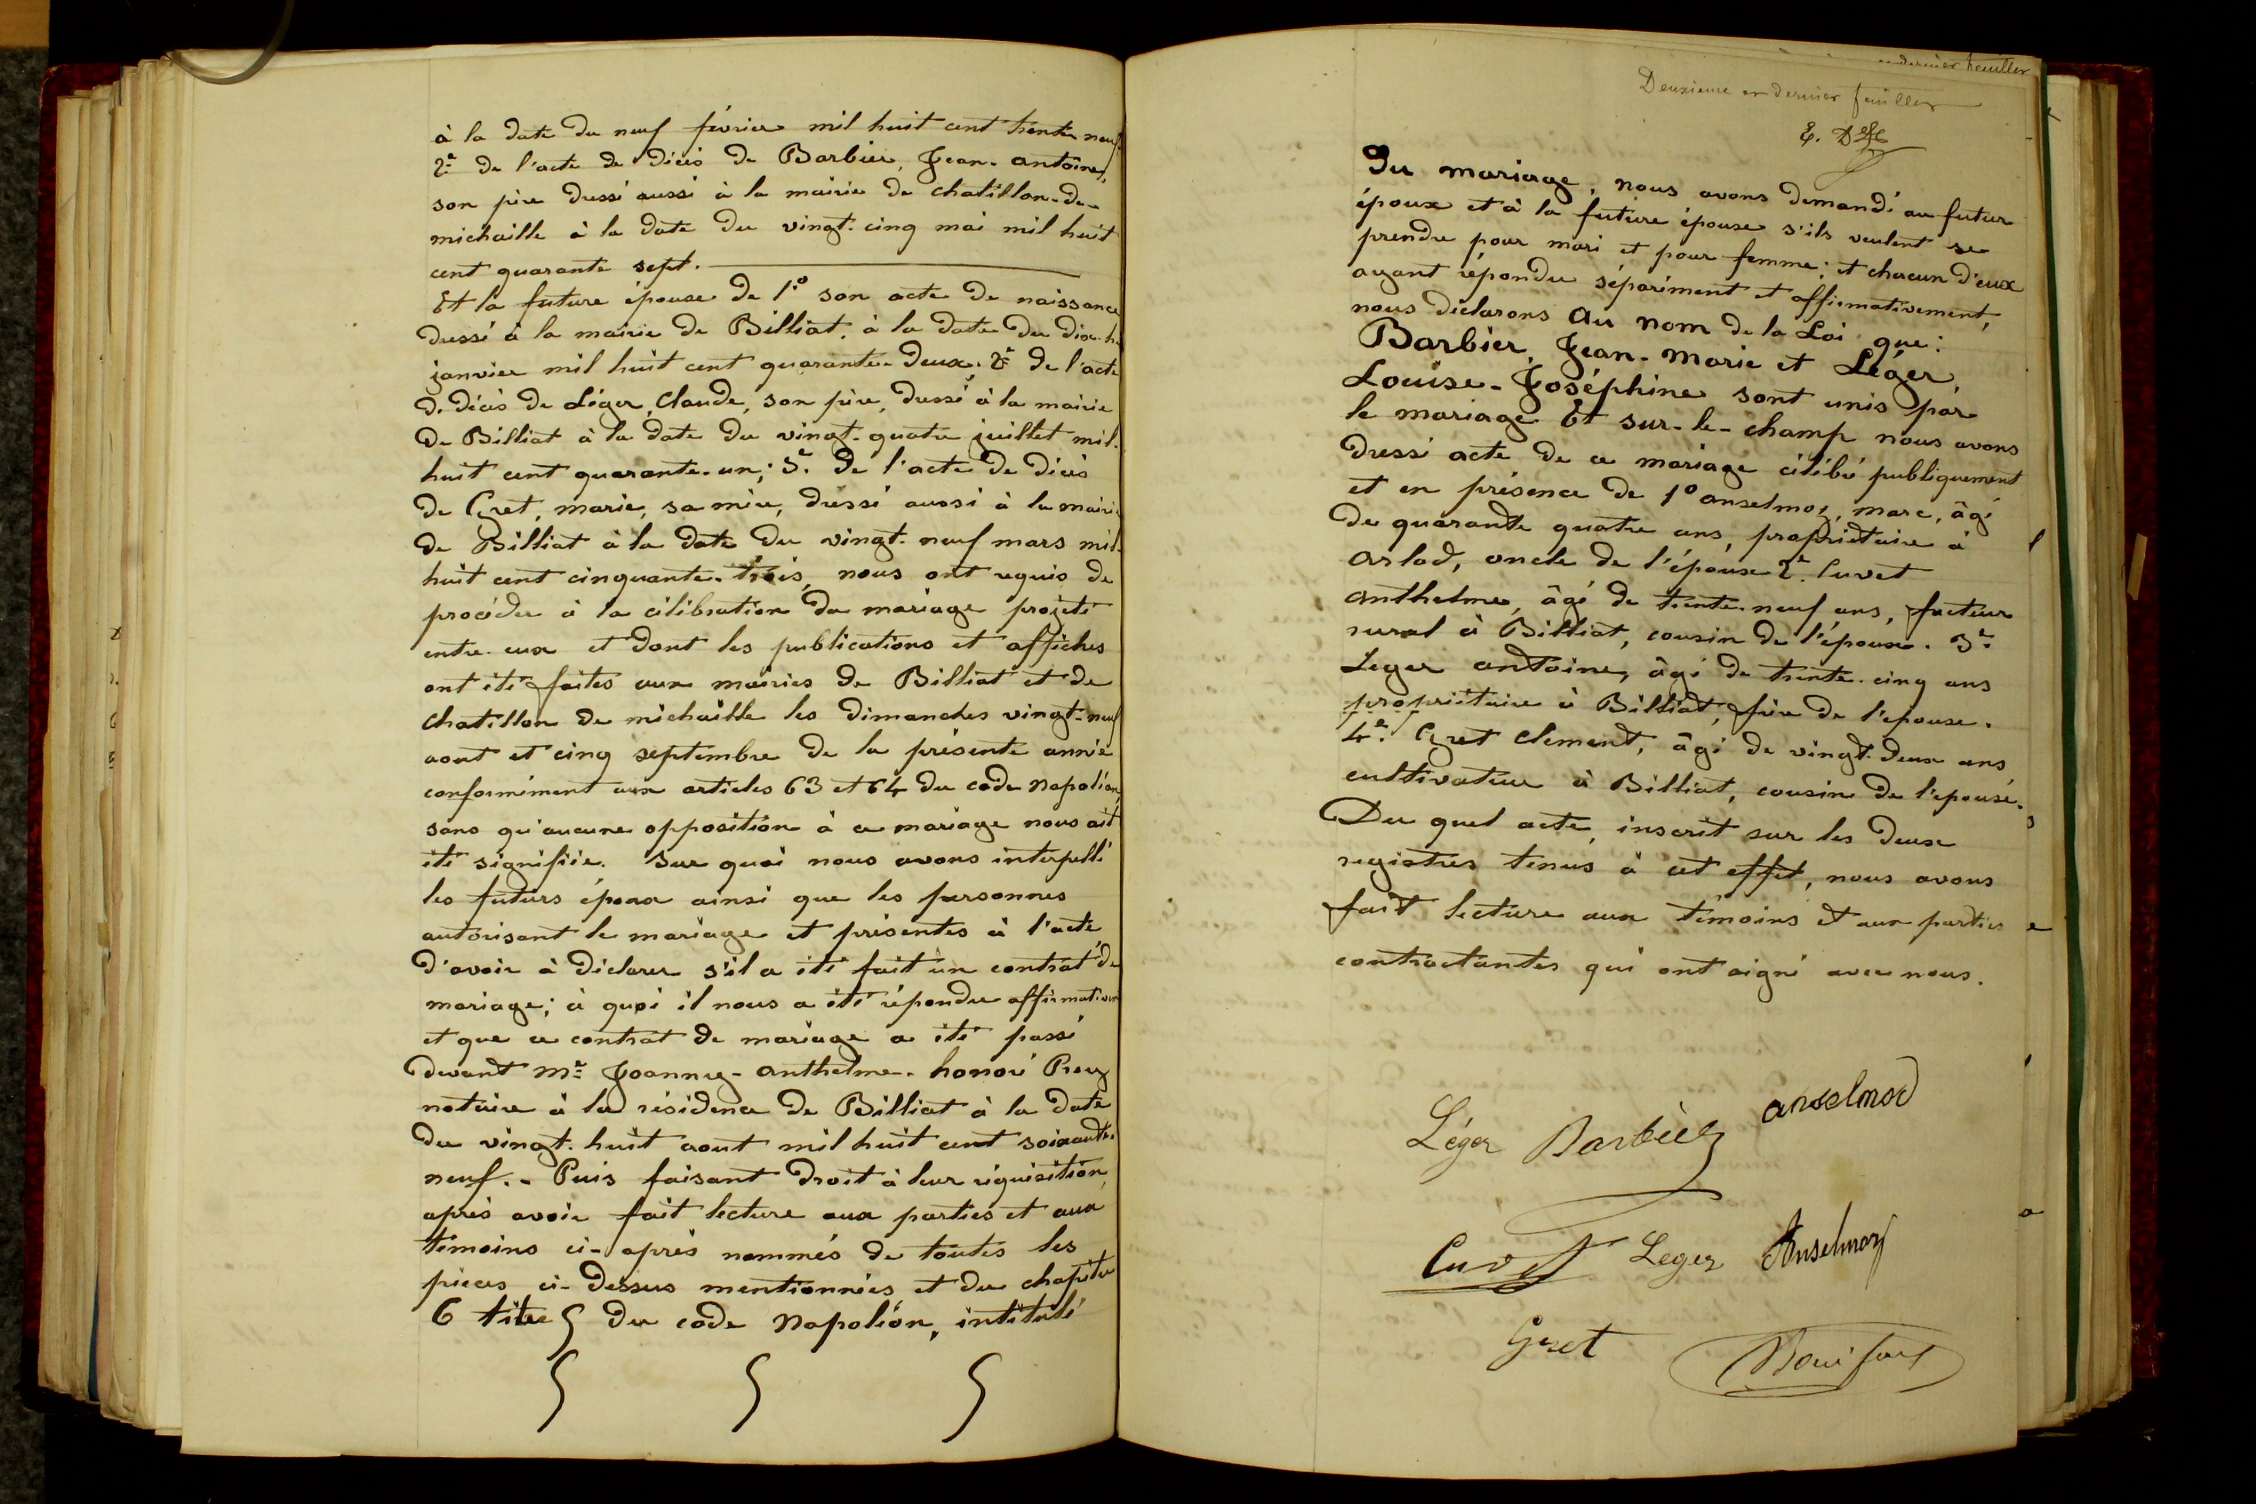 à la date du neuf février mil huit cent trente neuf
2e de l'acte de décès de Barbier, Jean-antoine,
son père dressé aussi à la mairie de chatillon-de-
michaille à la date du vingt-cinq mai mil huit
cent quarante sept.
Et la future épouse de 1.o son acte de naissance
dressé à la mairie de Billiat, à la date du dix-h
janvier mil huit cent quarante-deux; 2e de l'acte
de décès de Léger, Claude, son père, dressé à la mairie
de Billiat à la date du vingt-quatre juillet mil-
huit cent quarante-un; 3e de l'acte de décès
de Gret, marie, sa mère, dressé aussi à la mairie
de Billiat à la date du vingt-neuf mars mil-
huit cent cinquante-trois, nous ont requis de
procéder à la célébration du mariage projeté
entre eux et dont les publications et affiches
ont été faites aux mairies de Billiat et de
Chatillon de michaille les dimanches vingt-neuf
aout et cinq septembre de la présente année
conformément aux articles 63 et 64 du code Napoléon,
sans qu'aucune opposition à ce mariage nous ait
été signifiée. Sur quoi nous avons interpellé
les futurs époux ainsi que les personnes
autorisant le mariage et présentes à l'acte
d'avoir à déclarer s'il a été fait un contrat de
mariage; à quoi il nous a été répondu
et que ce contrat de mariage a été passé
devant Me Joanny-anthelme-honoré
notaire à la résidence de Billiat à la date
du vingt-huit aout mil huit cent soixante-
neuf.- Puis faisant droit à leur réquisition,
après avoir fait lecture aux parties et aux
témoins ci-après nommés de toutes les
pièces ci-dessus mentionnées et du chapitre
6 titre 5 du code Napoléon, intitulé
Deuxième et dernier feuillet
Du mariage, nous avons demandé au futur
époux et à la future épouse s'ils veulent se
prendre pour mari et pour femme; et chacun d'eux
ayant répondu séparément et affirmativement,
nous déclarons au nom de la Loi que:
Barbier, Jean-Marie et Léger,
Louise-Joséphine sont unis par
le mariage Et sur-le-champ nous avons
dressé acte de ce mariage célébré publiquement
et en présence de 1o anselmoz, marc, âgé
de quarante quatre ans, propriétaire à
arlod, oncle de l'épouse 2e Cuvet
anthelme, âgé de trente-neuf ans, facteur
rural à Billiat, cousin de l'épouse. 3e
Leger antoine, âgé de trente-cinq ans
propriétaire à Billiat, frère de l'epouse.
4e Gret Clement, âgé de vingt-deux ans,
cultivateur à Billiat, cousin de l'epouse.
Du quel acte, inscrit sur les deux
registres tenus à cet effet, nous avons
fait lecture aux témoins et aux parties
contractantes qui ont signé avec nous.
Léger Barbier anselmod
Cuvet Leger Anselmoz
Gret